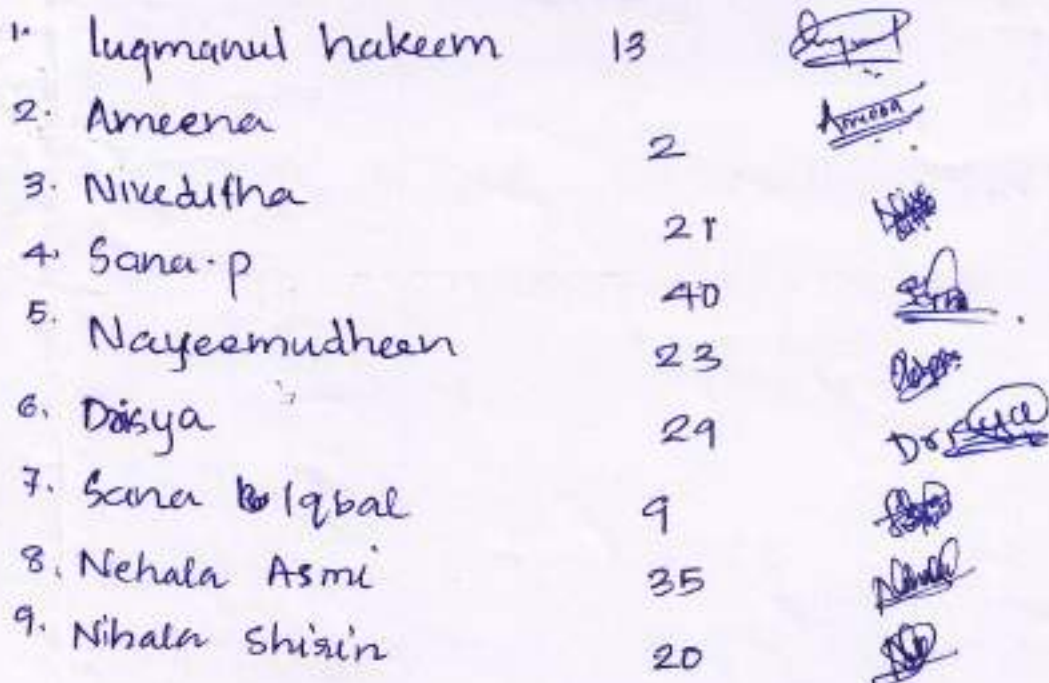 1. luqmanul hakeem 13
2. Ameena 2 Ameena
3. Niveditha 21
4. Sana.p 40
5. Nayeemudheen 23
6. Drisya 29 Drisya
7. Sana Iqbal 9
8. Nehala Asmi 35
9. Nihala Shirin 20